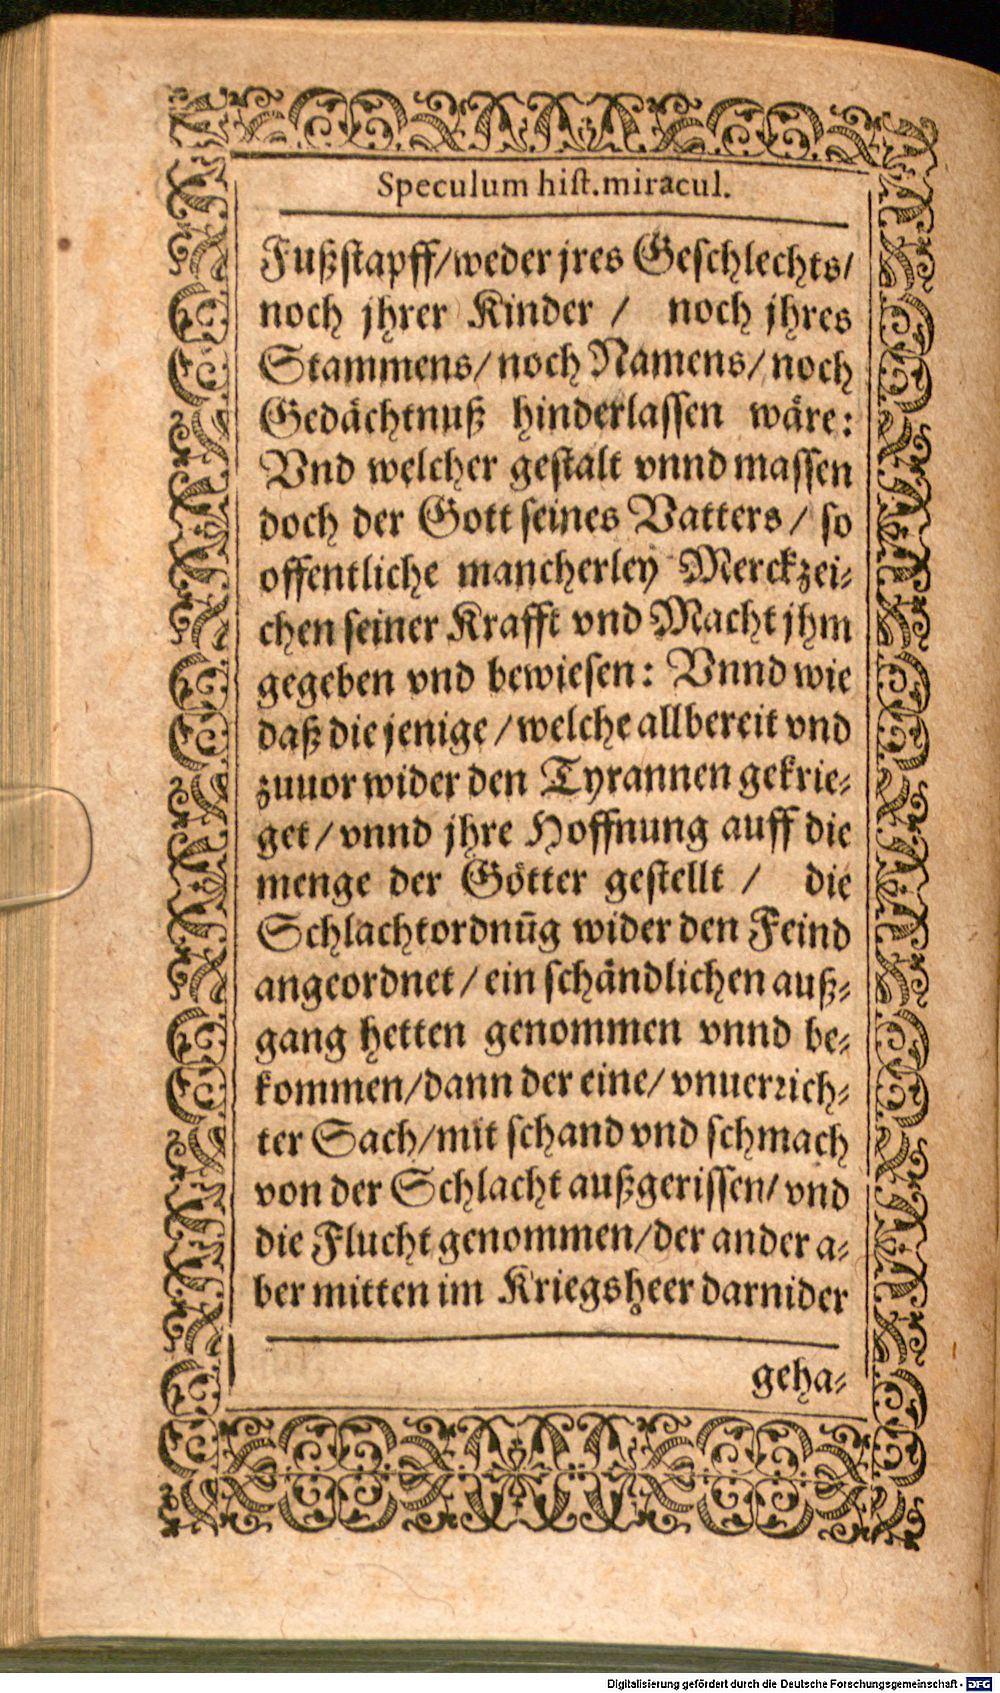 Speculum hist.miracul.
Fußstapff/weder jres Geschlechts/
noch jhrer Kinder / noch jhres
Stammens/noch Namens/noch
Gedächtnuß hinderlassen wäre:
Vnd welcher gestalt vnnd massen
doch der Gott seines Vatters / so
offentliche mancherley Merckzei⸗
chen seiner Krafft vnd Macht jhm
gegeben vnd bewiesen: Vnnd wie
daß die jenige /welche allbereit vnd
zuuor wider den Tyrannen gekrie⸗
get / vnnd jhre Hoffnung auff die
menge der Götter gestellt / die
Schlachtordnūg wider den Feind
angeordnet / ein schändlichen auß⸗
gang hetten genommen vnnd be⸗
kommen/dann der eine/ vnuerrich⸗
ter Sach/mit schand vnd schmach
von der Schlacht außgerissen/ vnd
die Flucht genommen/der ander a⸗
ber mitten im Kriegsheer darnider
geha⸗
Digitalisierung gefördert durch die Deutsche Forschungsgemeinschaft - DFG